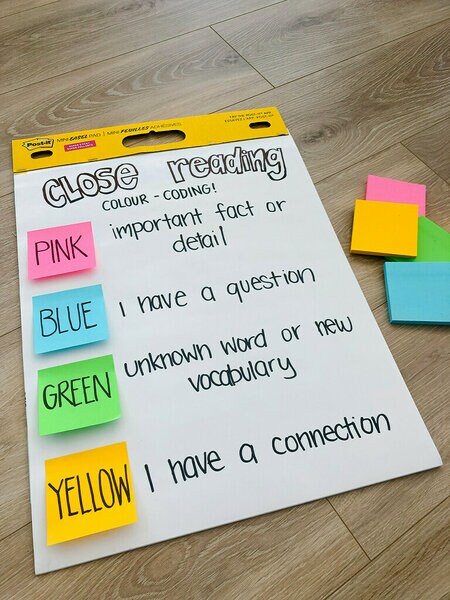 Post-it MINI EASEL PAD | MINI FEUILLES
CLOSE reading
COLOUR - CODING!
PINK important fact or
detail
BLUE I have a question
GREEN unknown word or new
vocabulary
YELLOW I have a connection